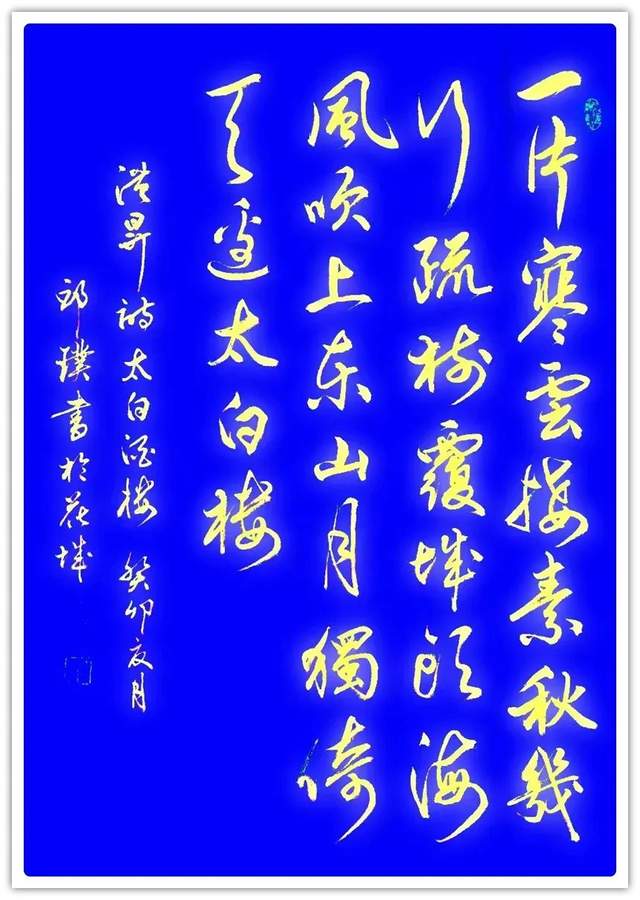 一片寒雲接素秋幾
行疏樹覆城頭海
風吹上东山月獨倚
天邊太白楼
洪昇诗太白酒楼 癸卯夏月
邱璞書於花城